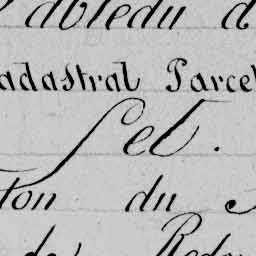 Tabledu d
adastral Parcel
Sel.
ton du
de Reda